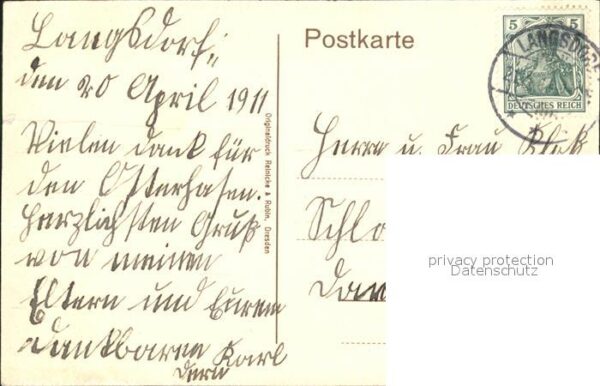 Langsdorf,
den 20 April 1911
Vielen dank für
den Osterhasen.
Herzlichsten Gruß
von meinen
Eltern und Eurem
dankbaren Karl
Originaldruck Reinicke & Rubin, Dresden
Postkarte
5 5
DEUTSCHES REICH
LANGSDORF
Herrn u. Frau
Schlo
privacy protection
Datenschutz